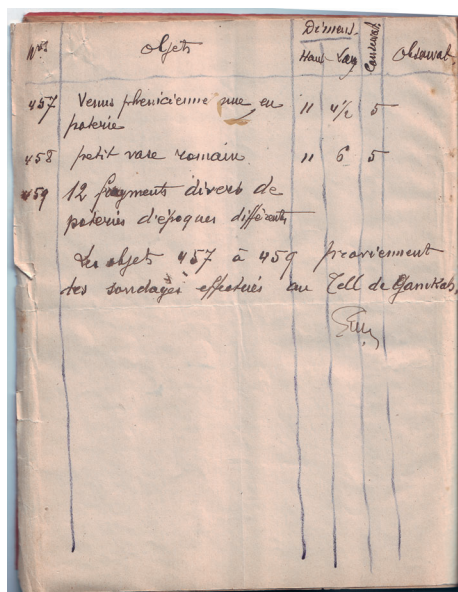 Nos objets Dimens. Conservat. Observat.
Haut Larg
457 Venus phenicienne nue en 11 4 1/2 5
poterie
458 petit vase romain 11 6 5
459 12 fragments divers de
poteries d'époques différents
Les objets 457 à 459 proviennent
des sondages effectués au Tell de